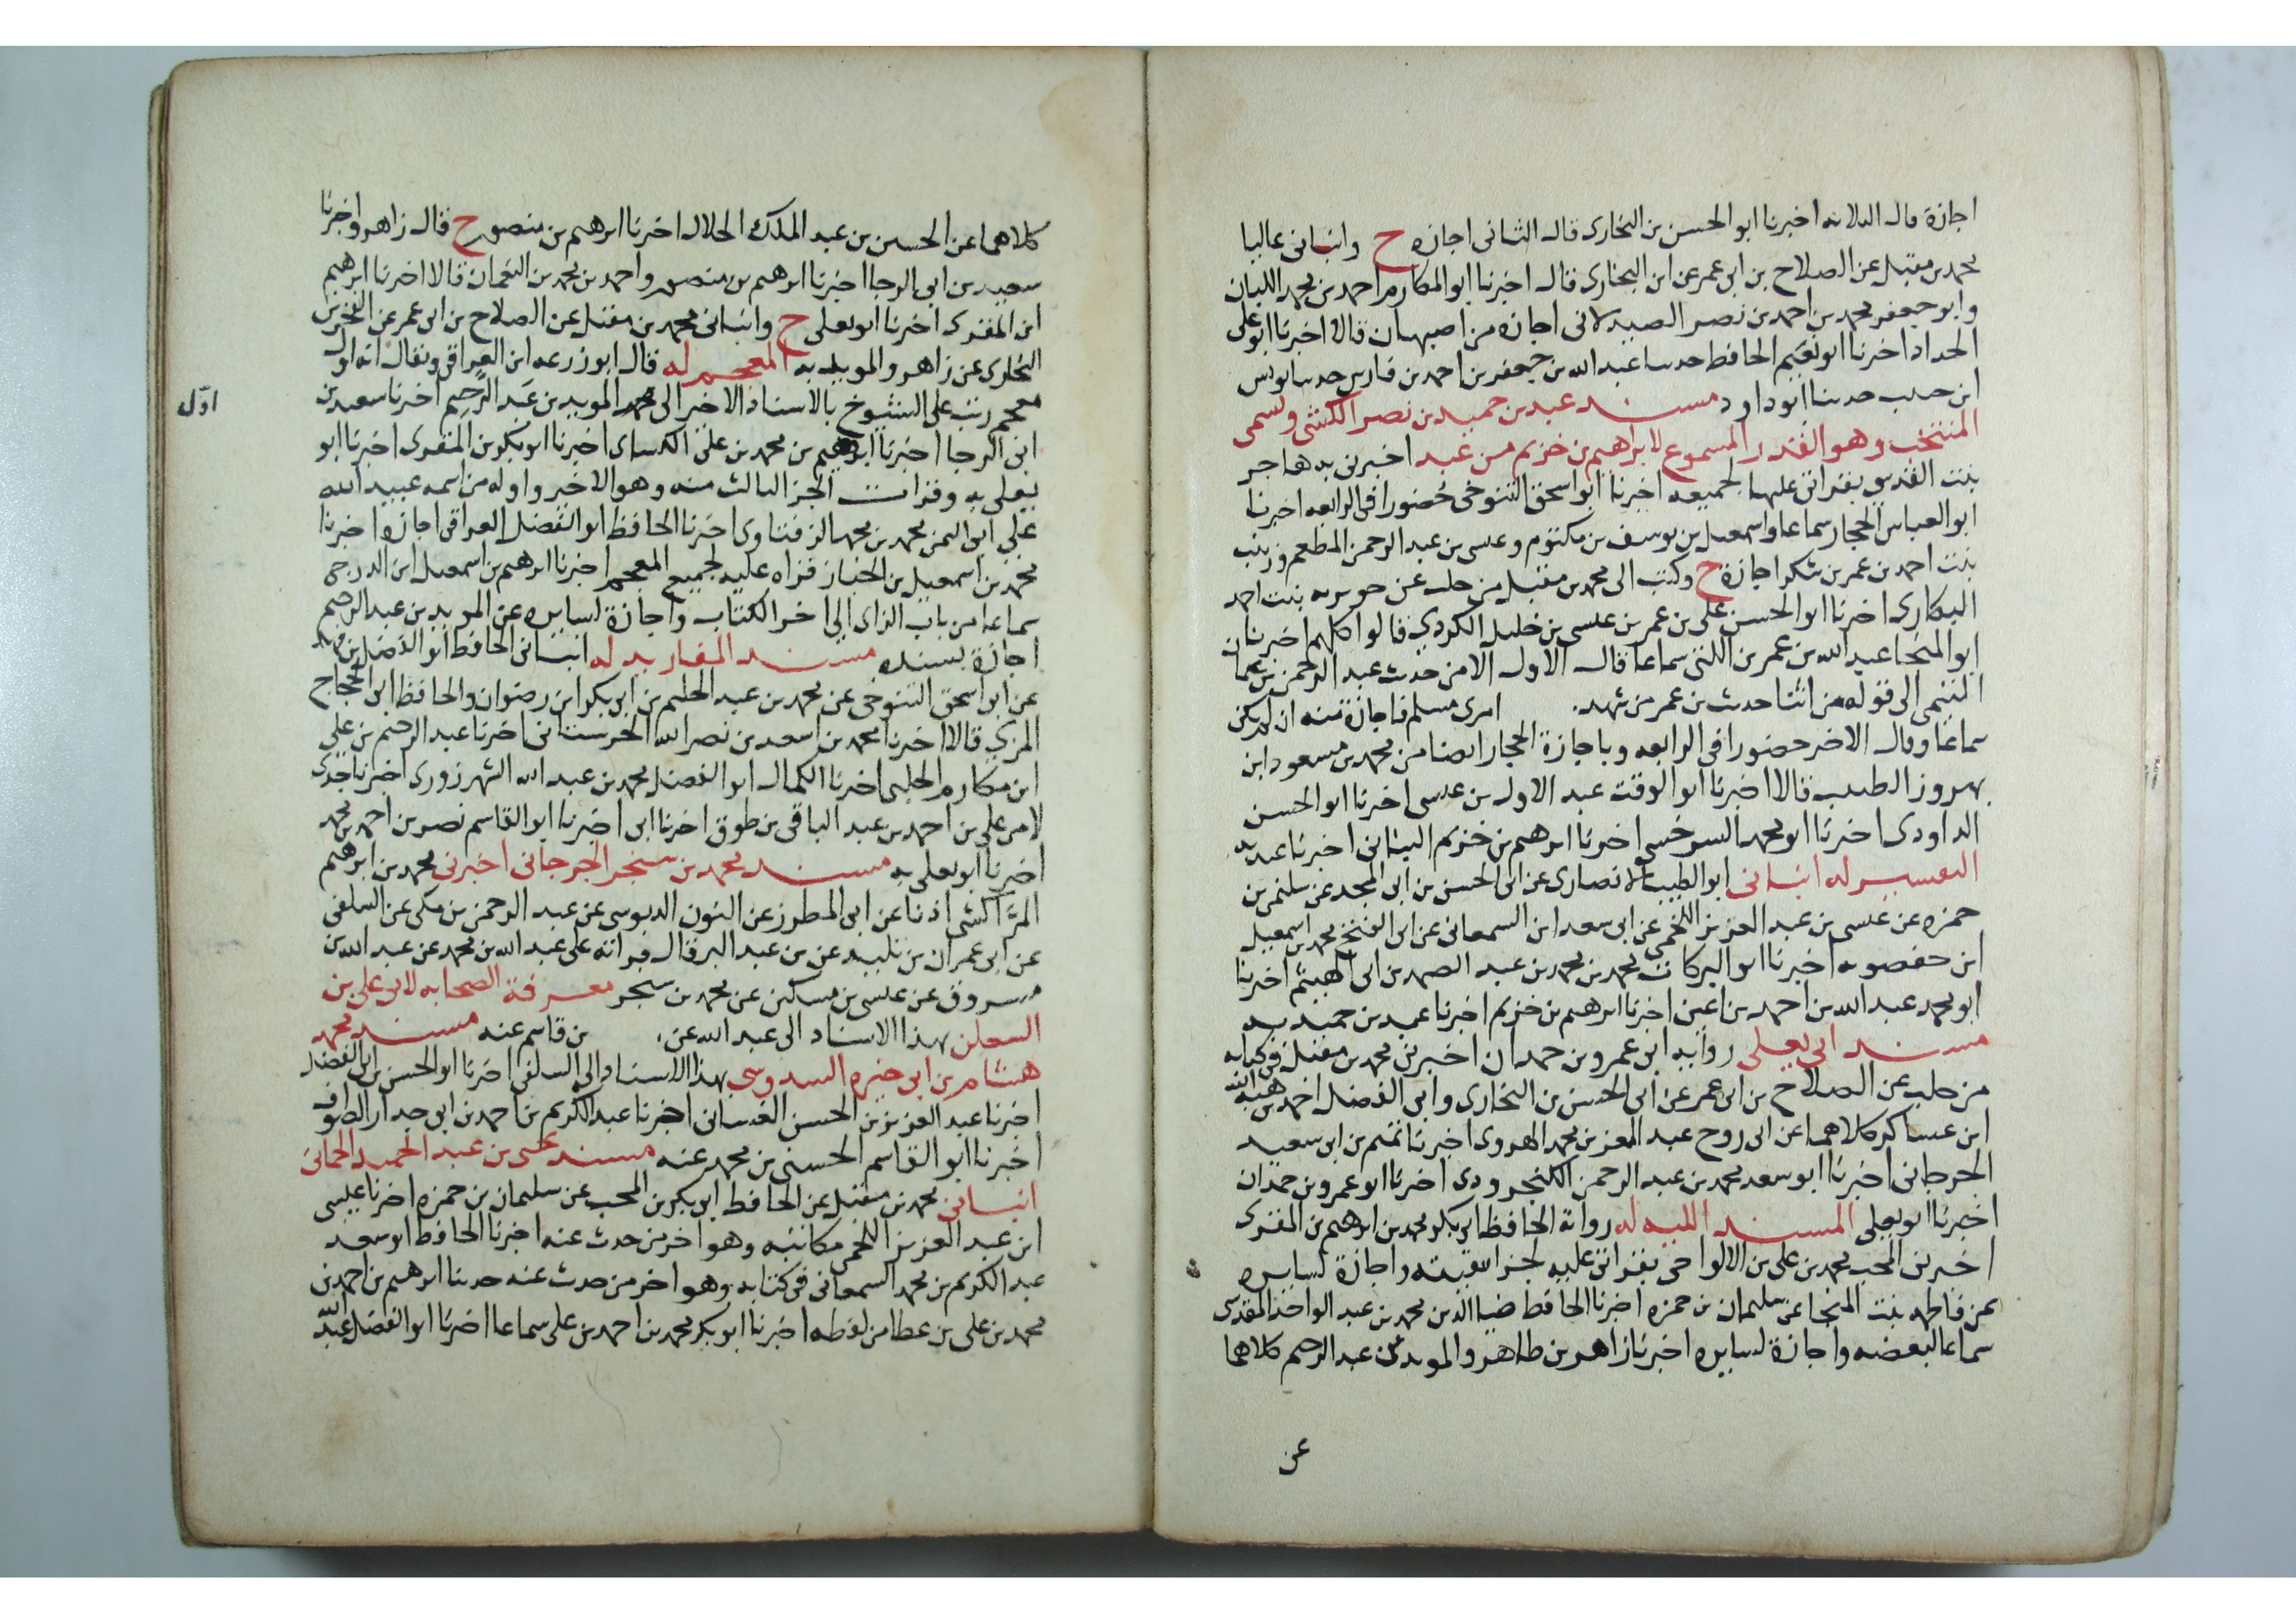 اجازة قال الثلاثه اخبرنا ابو الحسن بن البخارى قال الثانى اجازه ح وانبانى عاليا
محمد بن مقبل عن الصلاح بن ابى عمر عن ابن البخارى قال اخبرنا ابو المكارم احمد بن محمد اللبان
وابو جعفر محمد بن احمد بن نصر الصيدلانى اجازه من اصبهان قالا اخبرنا ابو على
الحداد اخبرنا ابو نعيم الحافظ حدثنا عبد الله بن جعفر بن احمد بن فارس حدثنا يونس
ابن حبيب حدثنا ابو داود مسند عبد بن حميد بن نصر الكشى ويسمى
المنتخب وهو القدر المسموع لابراهيم بن خزيم من عبد اخبرتنى به هاجر
بنت القدسى بقراتى عليها لجميعه اخبرنا ابو اسحق التنوخى حضورا فى الرابعه اخبرنا
ابو العباس الحجار سماعا واسمعيل بن يوسف بن مكتوم وعيسى بن عبد الرحمن المطعم وزينب
بنت احمد بن عمر بن شكر اجازة ح وكتب الى محمد بن مقبل من حلب عن جويريه بنت احمد
الهكارى اخبرنا ابو الحسن على بن عمر بن عيسى بن خليل الكردي قالوا كلهم اخبرنا
ابو المنجا عبد الله بن عمر بن اللتى سماعا قال الاول الا من حديث عبد الرحمن بن عثمان
التيمى الى قوله من اثنا حديث بن عمر من شهد امرى مسلم فاجازة منه ان لم يكن
سماعا وقال الاخر حضورا فى الرابعه وباجازة الحجار ايضا من محمد بن مسعود ابن
بهروز الطبيب قالا اخبرنا ابو الوقت عبد الاول بن عيسى اخبرنا ابو الحسن
الداودى اخبرنا ابو محمد السرخسى اخبرنا ابرهيم بن خزيم الشاشى اخبرنا عبد به
التفسير له انبانى ابو الطيب الانصارى عن ابى الحسن بن ابى المجد عن سليمن بن
حمزه عن عيسى بن عبد العزيز اللخمى عن ابى سعد ابن السمعانى عن ابى الفتح محمد بن اسمعيل
ابن حفصويه اخبرنا ابو البركات محمد بن محمد بن عبد الصمد بن ابى الهيثم اخبرنا
ابو محمد عبد الله بن احمد بن اعين اخبرنا ابرهيم بن خزيم اخبرنا عبد بن حميد به
مسند ابى يعلى رواية ابى عمرو بن حمدان اخبرنى محمد بن مقبل فى كتابه
من حلب عن الصلاح بن ابى عمر عن ابى الحسن بن البخارى وابى الفضل احمد بن هبة الله
ابن عساكر كلاهما عن ابى روح عبد المعز بن محمد الهروى اخبرنا تميم بن ابى سعيد
الجرجانى اخبرنا ابو سعد محمد بن عبد الرحمن الكنجرودى اخبرنا ابو عمرو بن حمدان
اخبرنا ابو يعلى المسند الكبير له رواية الحافظ ابى بكر محمد بن ابرهيم بن المقرى
اخبرنى المحب محمد بن على بن الالواحى بقراتى عليه لجزا نتقيته واجازة لسايره
عن فاطمه بنت المنجا عن سليمان بن حمزه اخبرنا الحافظ ضيا الدين محمد بن عبد الواحد المقدسى
سماعا لبعضه واجازة لسايره اخبرنا زاهر بن طاهر والمويد بن عبد الرحيم كلاهما
عن
كلاهما عن الحسين بن عبد الملك الخلال اخبرنا ابرهيم بن منصور ح قال زاهر واخبرنا
سعيد بن ابى الرجا اخبرنا ابرهيم بن منصور واحمد بن محمد بن النعمان قالا اخبرنا ابرهيم
ابن المقرى اخبرنا ابو يعلى ح وانبانى محمد بن مقبل عن الصلاح بن ابى عمر عن الفخر بن
البخارى عن زاهر والمويد به المعجم له قال ابو زرعه ابن العراقى ويقال انه اول
معجم رتب على الشيوخ بالاسناد الاخير الى محمد المويد بن عبد الرحيم اخبرنا سعيد بن
اول
ابى الرجا اخبرنا ابرهيم بن محمد بن على الكسائى اخبرنا ابو بكر بن المقرى اخبرنا ابو
يعلى به وقرات الجز الثالث منه وهو الاخير واوله من اسمه عبيد الله
على ابى اليمن محمد بن محمد الزفتاوى اخبرنا الحافظ ابو الفضل العراقى اجازه اخبرنا
محمد بن اسمعيل بن الخباز قراه عليه لجميع المعجم اخبرنا ابرهيم بن اسمعيل ابن الدرجى
سماعا من باب الزاى الى اخر الكتاب واجازة لسايره عن المويد بن عبد الرحيم
اجازة بسنده مسند المقاريد له انبانى الحافظ ابو الفضل بن محمد
عن ابو اسحق التنوخى عن محمد بن عبد الحليم بن ابى بكر ابن رضوان والحافظ ابى الحجاج
المزى قالا اخبرنا محمد بن اسعد بن نصر الله الحرستانى اخبرنا عبد الرحيم بن على
ابن مكارم الحلبى اخبرنا الكمال ابو الفضل محمد بن عبد الله الشهرزورى اخبرنا جدى
لامى على بن احمد بن عبد الباقى بن طوق اخبرنا ابى اخبرنا ابو القاسم نصر بن احمد بن محمد
اخبرنا ابو يعلى به مسند محمد بن سنجر الجرجانى اخبرنى محمد بن ابرهيم
المراكشى اذنا عن ابى المطرز عن النون الدبوسى عن عبد الرحمن بن مكى عن السلفى
عن ابى عمران بن تليد عن بن عبد البر قال قراته على عبد الله بن محمد عن عبد الله بن
مسروق عن عيسى بن مسكين عن محمد بن سنجر معرفة الصحابه لابى على بن
السكن بهذا الاسناد الى عبد الله عن بن قاسم عنه مسند محمد
هشام بن ابى خيره السدوسى بهذا الاسناد الى السلفى اخبرنا ابو الحسن بن ابى الفضل
اخبرنا عبد العزيز بن الحسن الغسانى اخبرنا عبد الكريم بن احمد بن ابى جدار الصواف
اخبرنا ابو القاسم الحسنى بن محمد عنه مسند يحيى بن عبد الحميد الحمانى
انبانى محمد بن مقبل عن الحافظ ابو بكر بن المحب عن سليمان بن حمزه اخبرنا عيسى
ابن عبد العزيز اللخمى مكاتبه وهو اخر من حدث عنه اخبرنا الحافظ ابو سعد
عبد الكريم بن محمد السمعانى فى كتابه وهو اخر من حدث عنه حدثنا ابرهيم بن احمد بن
محمد بن على بن عطا من لفظه اخبرنا ابو بكر محمد بن احمد بن على سماعا اخبرنا ابو الفضل عبد الله